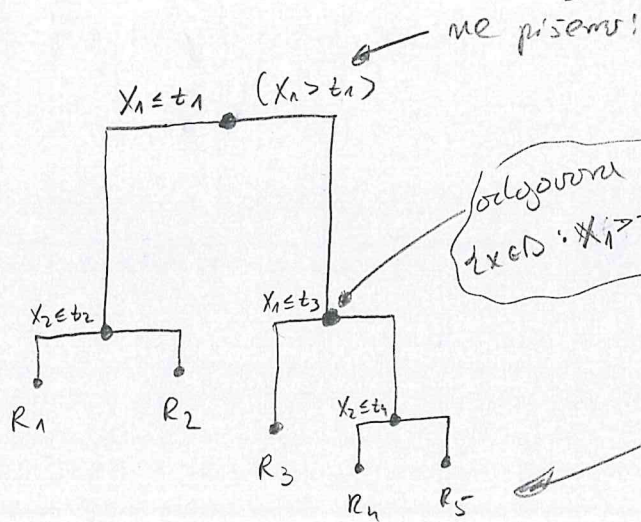 ne pišemo!
X₁ ≤ t₁ (X₁ > t₁)
odgovara
{x ∈ D : X₁ >
X₂ ≤ t₂
X₁ ≤ t₃
X₂ ≤ t₄
R₁
R₂
R₃
R₄
R₅